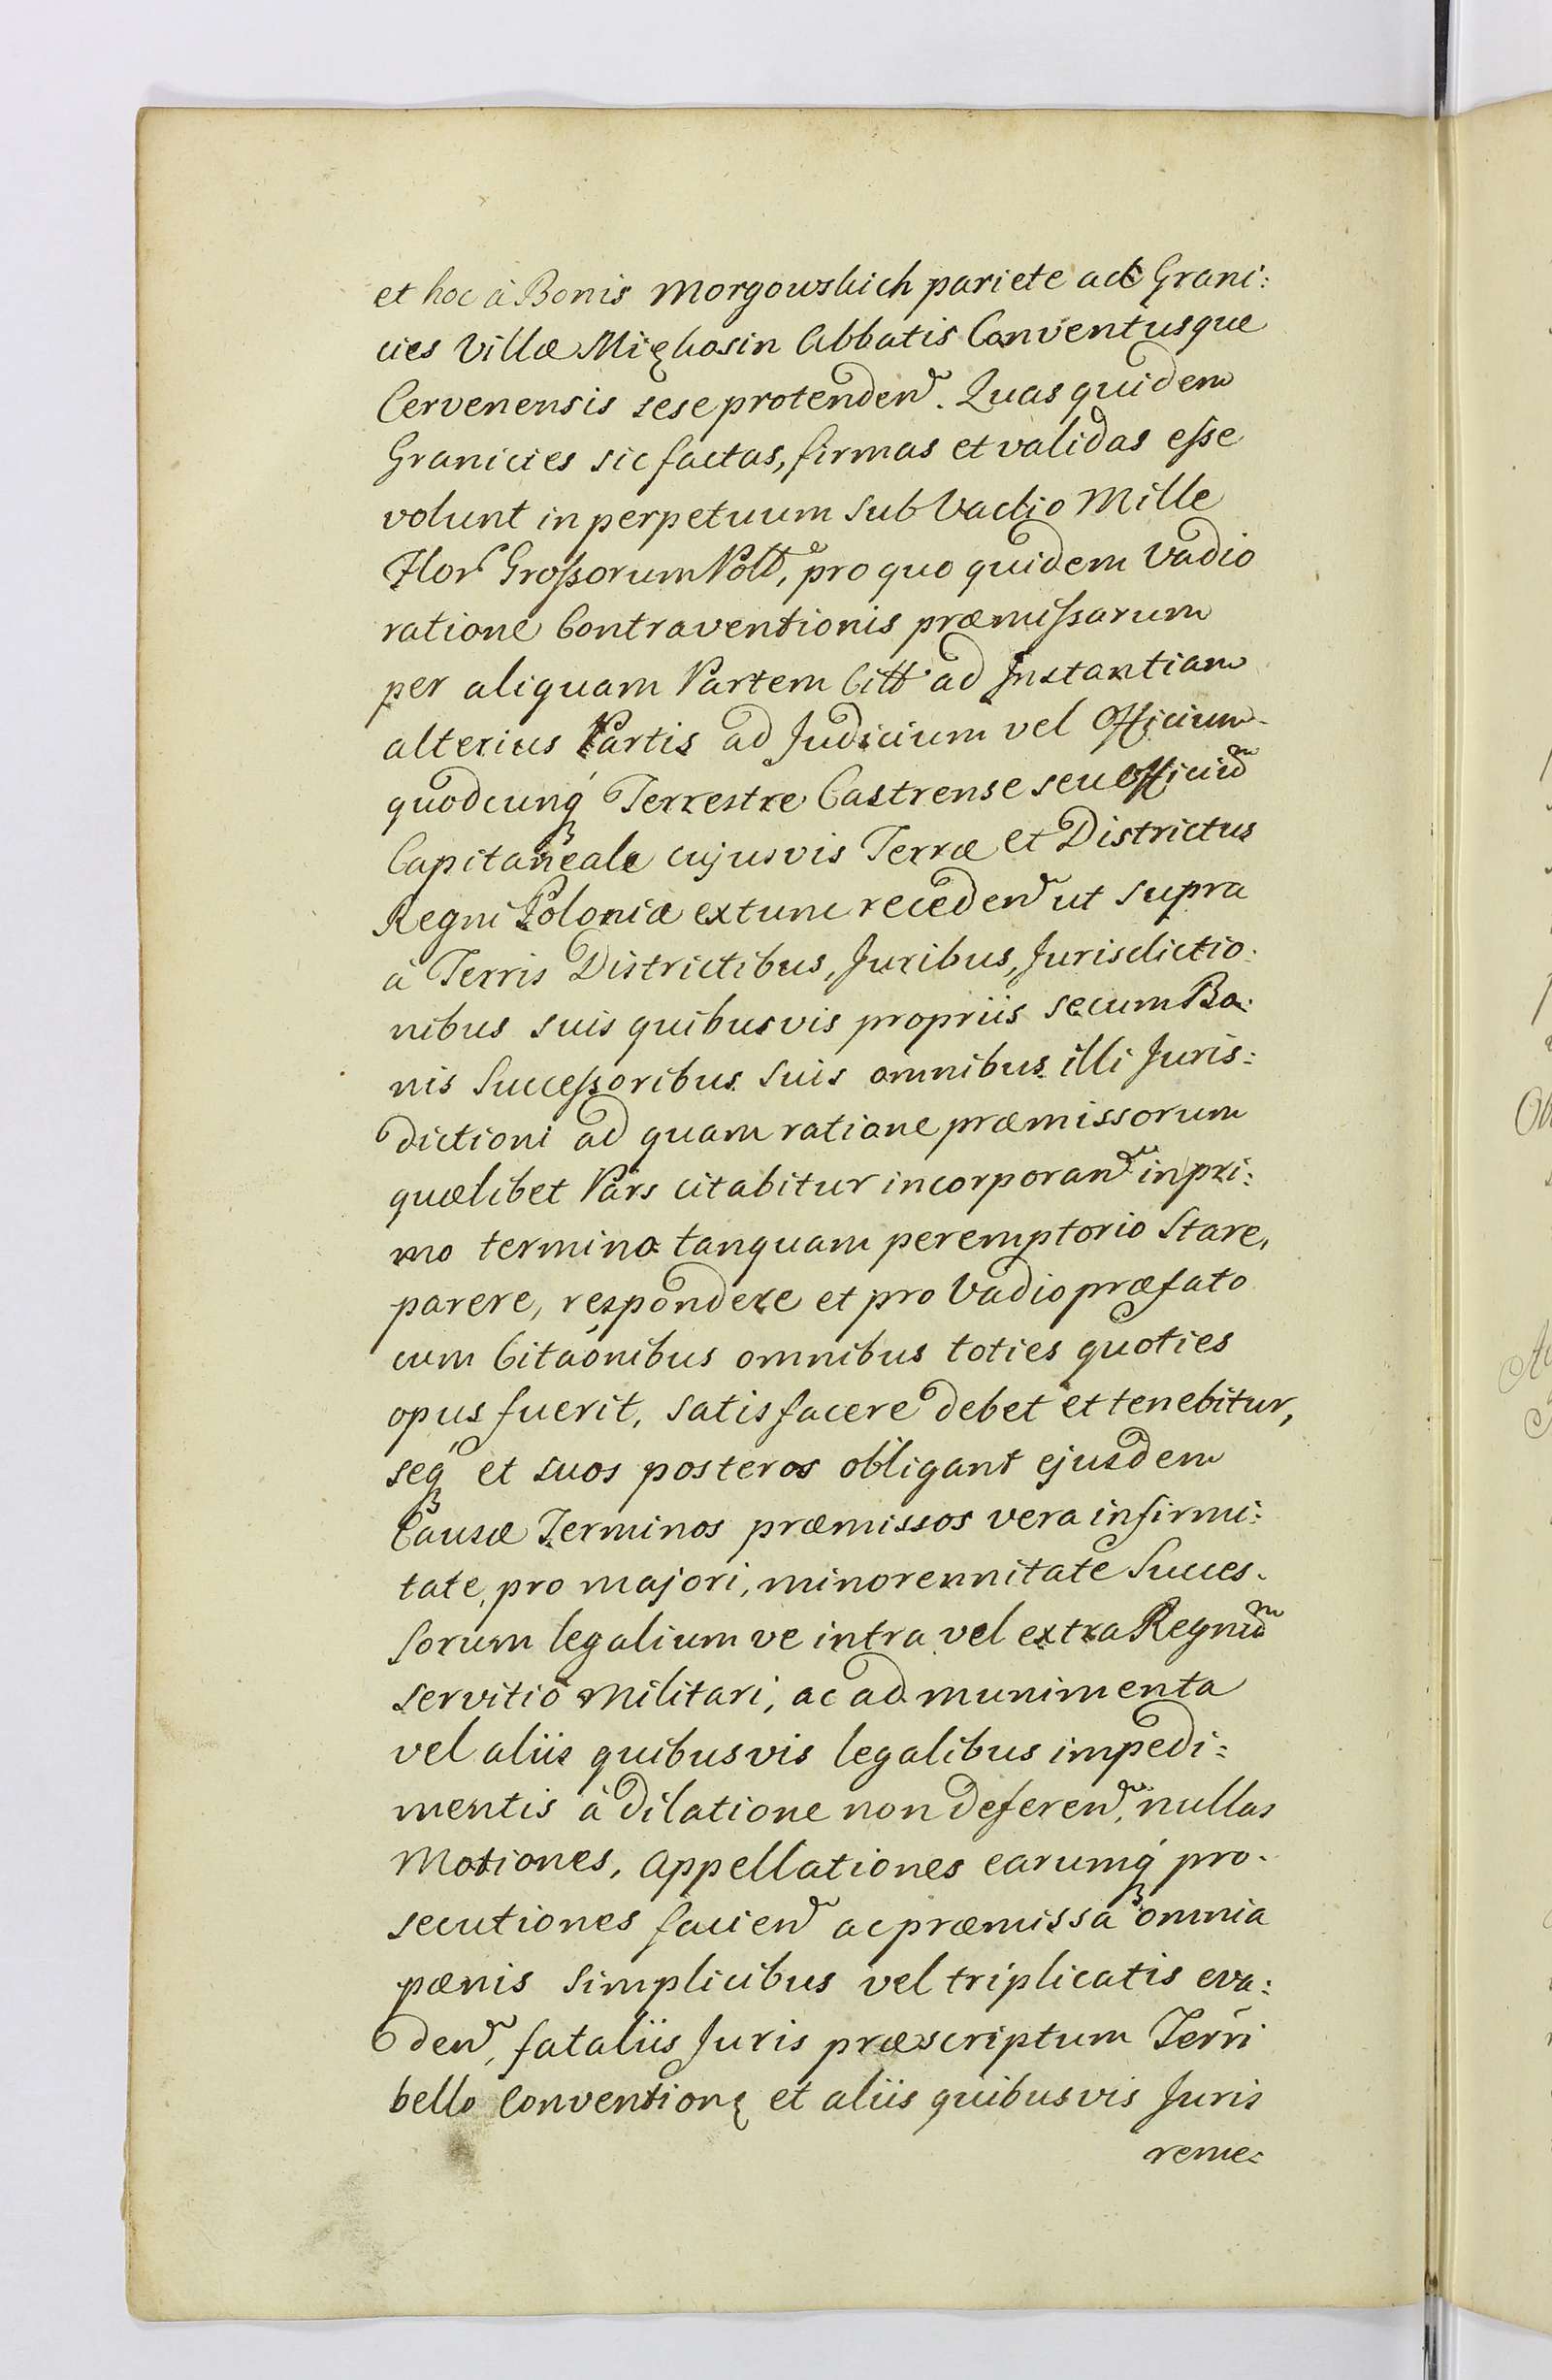 et hoc à Bonis Morgowskich pariete ad Grani:
cies Villæ Mięhosin Abbatis Conventusque
Cervenensis sese protenden̄. Quas quidem
Granicies sic factas, firmas et validas eſse
volunt in perpetuum sub Vadio Mille
Flor Groſsorum Poll, pro quo quidem Vadio
ratione Contraventionis præmiſsarum
per aliquam Partem Citt ad Instantiam
alterius Partis ad Judicium vel Officium
quodcunq́ Terrestre Castrense seu Officiū
Capitaneale cujusvis Terræ et Districtus
Regni Poloniæ extunc receden̄ ut supra
à Terris Districtibus, Juribus, Jurisdictio:
nibus suis quibusvis propriis secum Bo:
nis Succeſsoribus suis omnibus illi Juris:
dictioni ad quam ratione præmissorum
quælibet Pars citabitur incorporan̄ in pri:
mo termino tanquam peremptorio Stare,
parere, respondere et pro Vadio præfato
cum Citaónibus omnibus toties quoties
opus fuerit, satisfacere debet et tenebitur,
seq́ et suos posteros obligant ejusdem
Causæ Terminos præmissos vera infirmi:
tate, pro majori, minorennitate Succes-
sorum legalium ve intra vel extra Regnū
servitio Militari, ac ad munimenta
vel aliis quibusvis legalibus impedi:
mentis à dilatione non deferen̄, nullas
Motiones, Appellationes earumq́ pro-
secutiones facien̄ ac præmissa omnia
pænis simplicibus vel triplicatis eva:
den̄, fataliis Juris præscriptum Terri
bello Conventionę et aliis quibusvis Juris
reme: